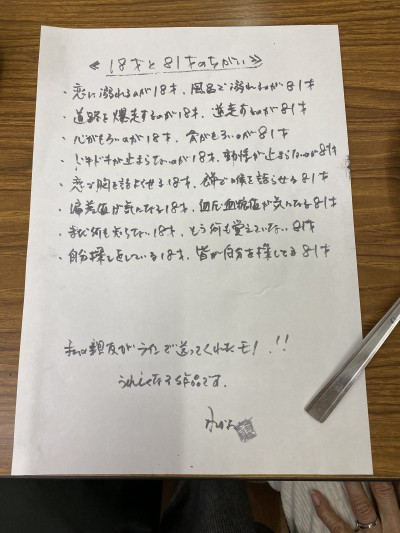 ≪18才と81才のちがい≫
・恋に溺れるのが18才、風呂で溺れるのが81才
・道路を爆走するのが18才、逆走するのが81才
・心がもろいのが18才、骨がもろいのが81才
・ドキドキが止まらないのが18才、動悸が止まらないのが81才
・恋で胸を詰まらせる18才、餅で喉を詰らせる81才
・偏差値が気になる18才、血圧血糖値が気になる81才
・まだ何も知らない18才、もう何も覚えていない81才
・自分探しをしている18才、皆が自分を探してる81才
私の親友がラインで送ってくれたモノ!!
うれしくなる作品です。